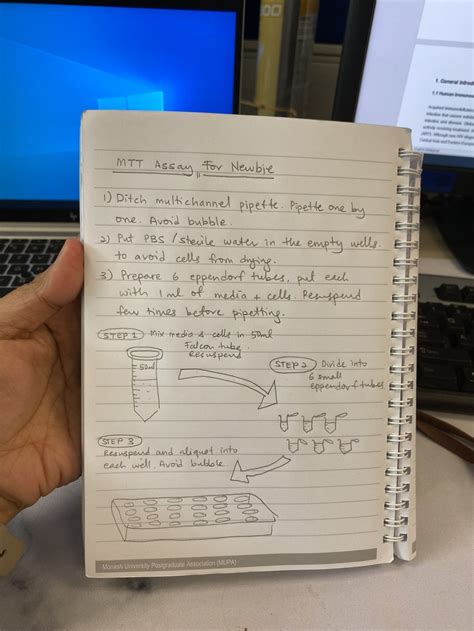 MTT Assay For Newbie
1) Ditch multichannel pipette. Pipette one by
one. Avoid bubble.
2) Put PBS / sterile water in the empty wells
to avoid cells from drying.
3) Prepare 6 eppendorf tubes, put each
with 1 ml of media + cells. Resuspend
few times before pipetting.
STEP 1 Mix media & cells in 50ml
Falcon tube.
Resuspend
50ml
STEP 2 Divide into
6 small
eppendorf tubes
STEP 3
Resuspend and aliquot into
each well. Avoid bubble.
Monash University Postgraduate Association (MUPA)
1. General Introdu